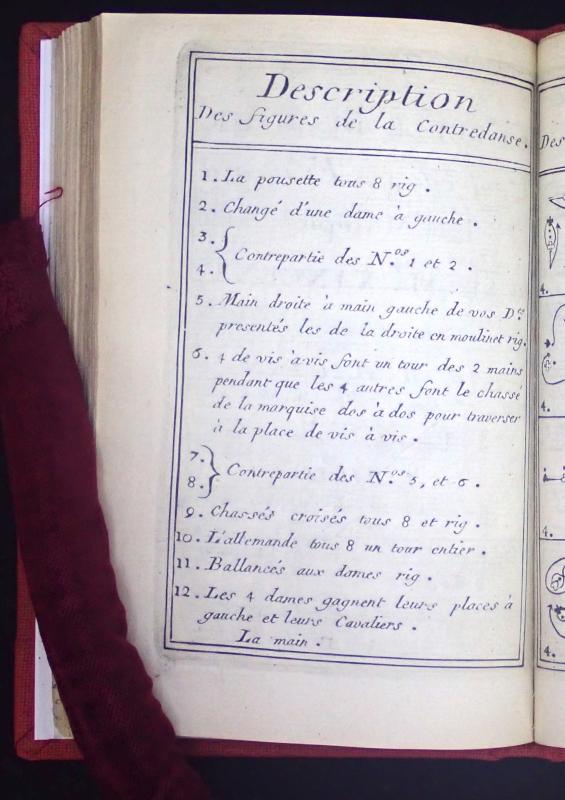 Description
Des figures de la Contredanse.
1. La pousette tous 8 rig.
2. Changé d'une dame à gauche.
3.
4.
Contrepartie des N.os 1 et 2.
5. Main droite à main gauche de vos D.es
presentés les de la droite en moulinet rig.
6. 4 de vis à vis font un tour des 2 mains
pendant que les 4 autres font le chassé
de la marquise dos à dos pour traverser
à la place de vis à vis.
7.
8.
Contrepartie des N.os 5, et 6.
9. Chassés croisés tous 8 et rig.
10. L'allemande tous 8 un tour entier.
11. Ballancés aux dames rig.
12. Les 4 dames gagnent leurs places à
gauche et leurs Cavaliers.
La main.
Des
4.
4.
4.
4.